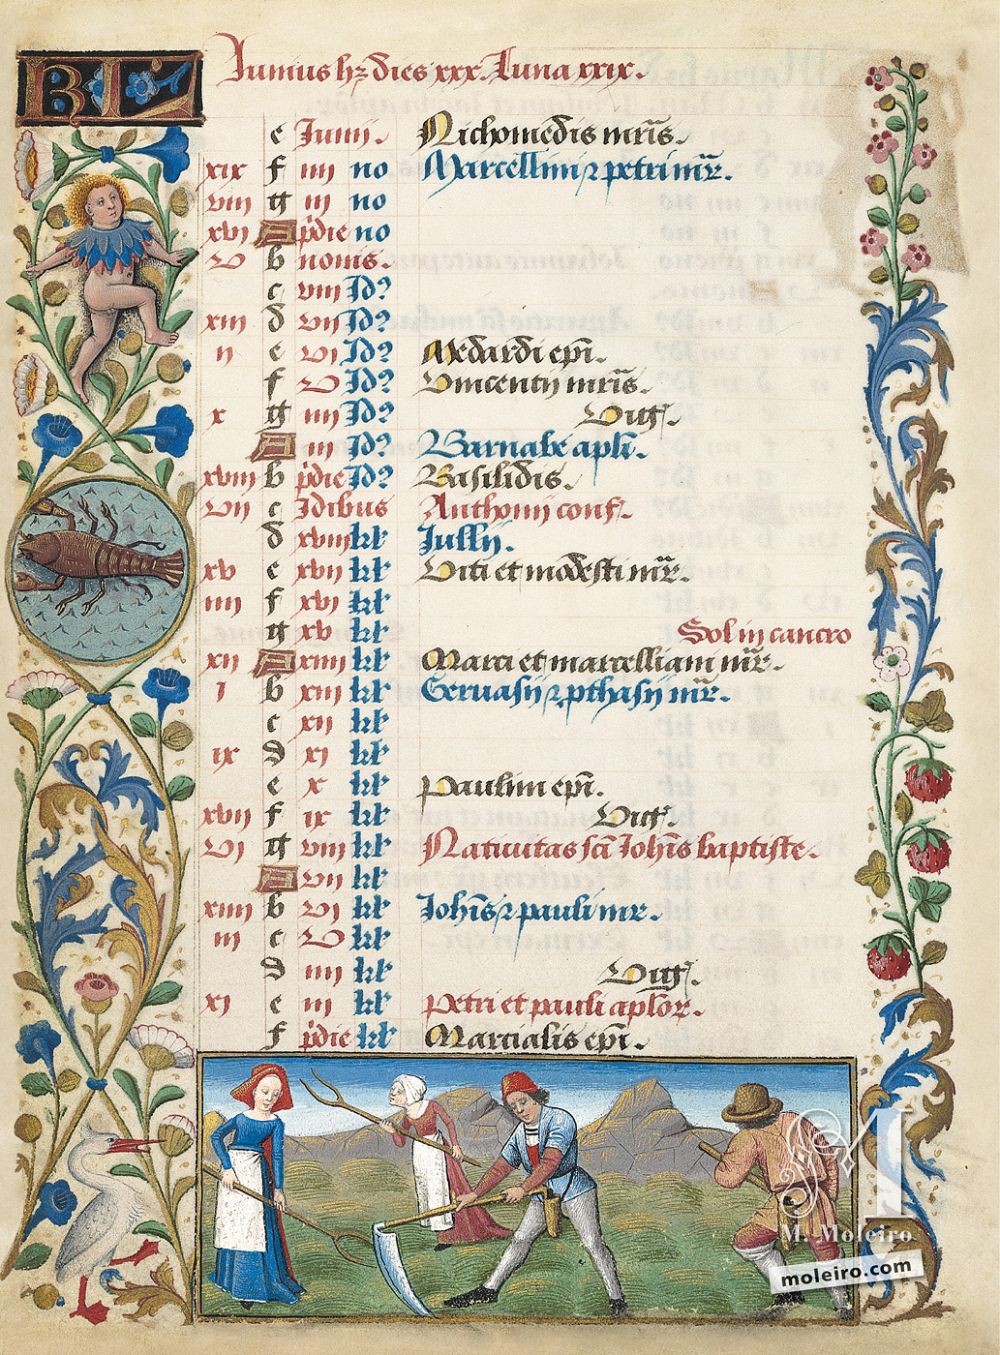 KL Iunius hꝫ dies xxx. Luna xxix.
e Iunij. Nichomedis mr̄is.
xix f iiij no Marcellini ⁊ petri mr̄.
viij g iij no
xvj A p'die no
v b nonis.
c viij Id?
xiij d vij Id?
ij e vj Id? Medardi ep̄i.
f v Id? Vincentij mr̄is.
x g iiij Id? Vigꝭ.
A iij Id? Barnabe apl̄i.
xviij b p'die Id? Basilidis.
vij c Idibus Anthonij conf.
d xviij kl̄ Jullij.
xv e xvij kl̄ Viti et modesti mr̄.
iiij f xvj kl̄
g xv kl̄ Sol in cancro
xij A xiiij kl̄ Marci et marcelliani mr̄.
j b xiij kl̄ Geruasij ⁊ pthasij mr̄.
c xij kl̄
ix d xj kl̄
e x kl̄ Paulini ep̄i.
xvij f ix kl̄ Vigꝭ.
vj g viij kl̄ Natiuitas sc̄i Ioh̄is baptiste.
A vij kl̄
xiiij b vj kl̄ Ioh̄is ⁊ pauli mr̄.
iij c v kl̄
d iiij kl̄ Vigꝭ.
xj e iij kl̄ Petri et pauli aplor̄.
f p'die kl̄ Martialis ep̄i.
M
M. Moleiro
moleiro.com